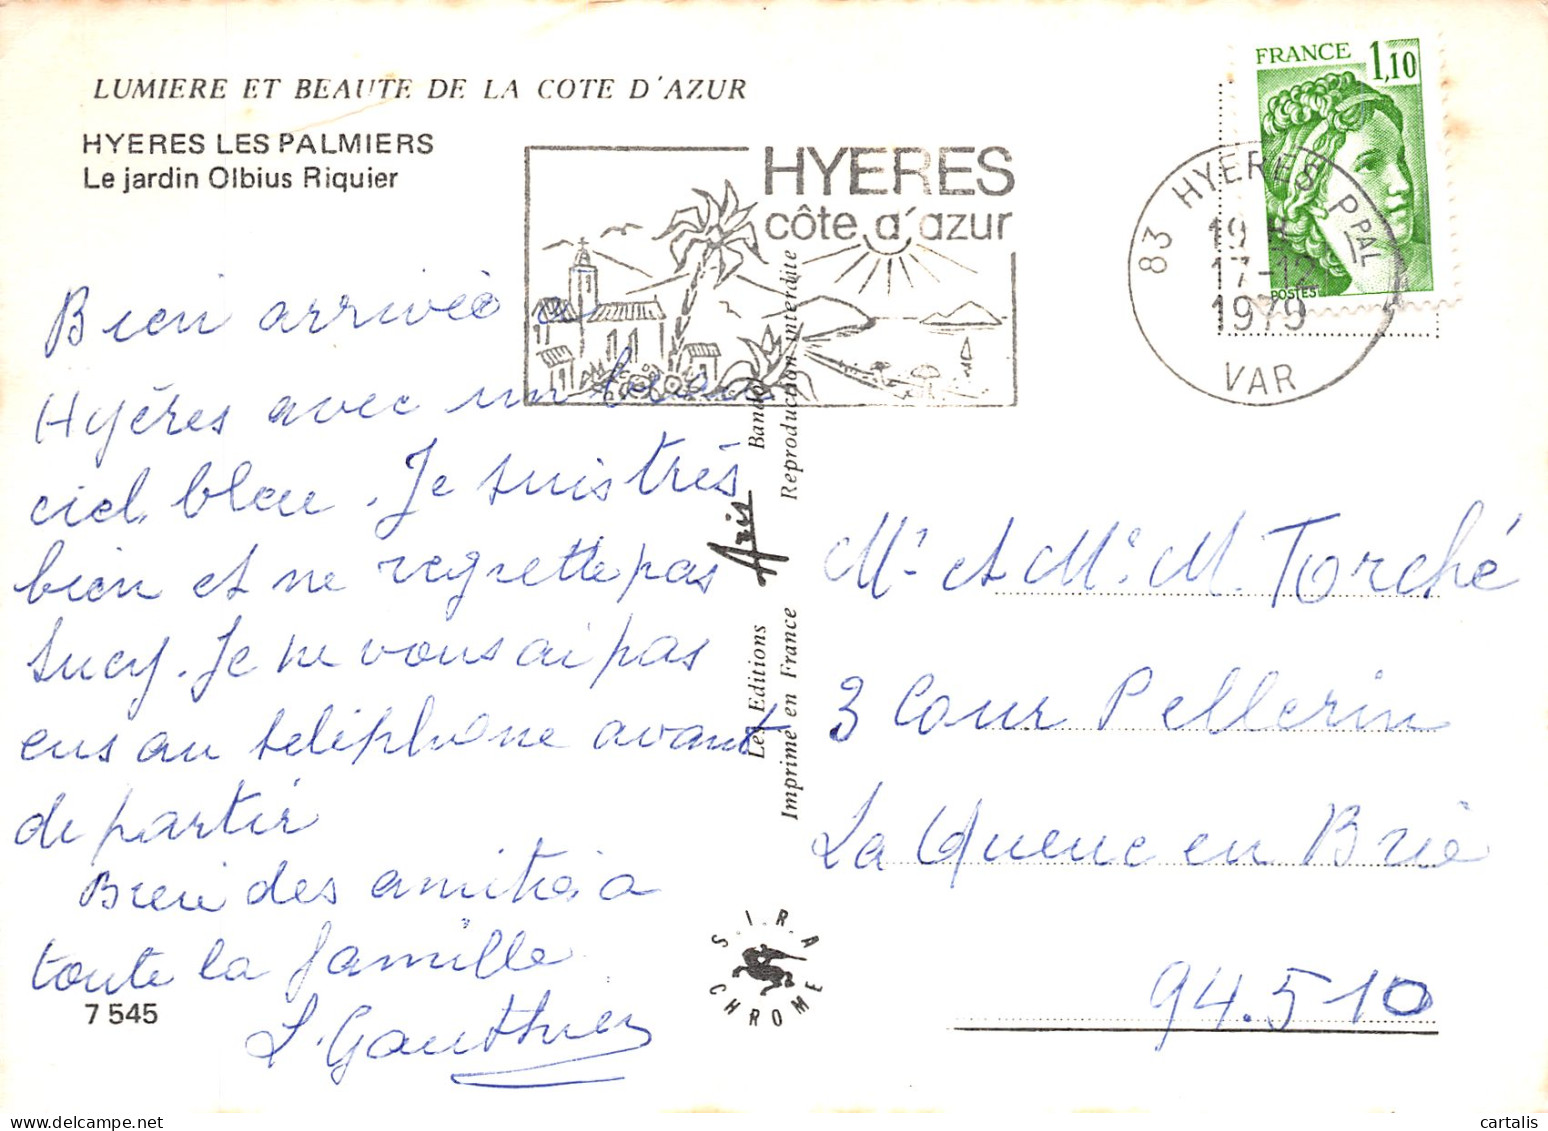 LUMIERE ET BEAUTE DE LA COTE D'AZUR
HYERES LES PALMIERS
Le jardin Olbius Riquier
HYERES
côte d'azur
FRANCE 1,10
POSTES
83 HYERES PPAL
17-12
1979
VAR
Bien arrivée a
Hyéres avec un beau
ciel bleu. Je suis très
bien et ne regrette pas
Sucy. Je ne vous ai pas
eus au téléphone avant
de partir
Bien des amitiés a
toute la famille
7 545
Les Editions Aris Bandol
Imprimé en France Reproduction interdite
S.I.R.A
CHROME
Mr et Me M. Torché
3 Cour Pellerin
La Queue en Brie
94.510
cartalis